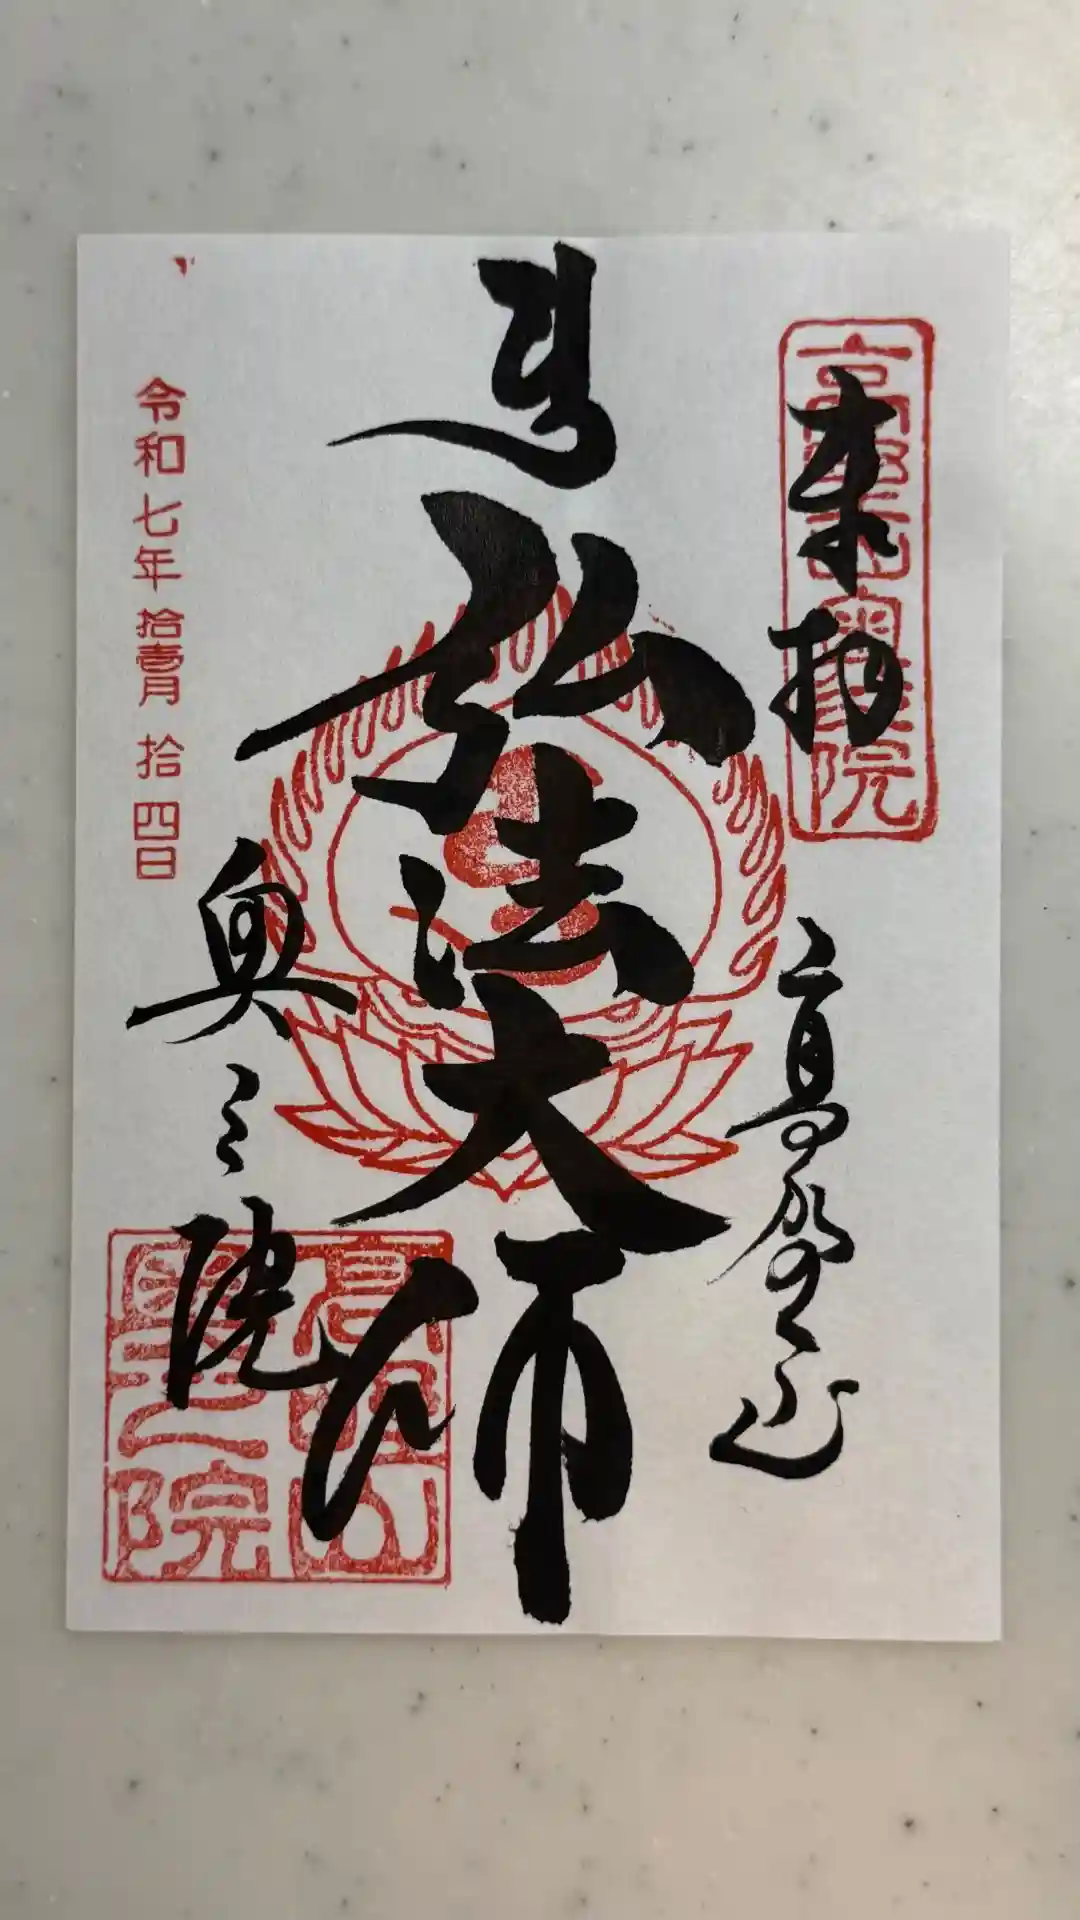 高野山奥之院
奉拝
高野山
弘法大師
令和七年拾壹月拾四日
奥之院
高野山
奥之院